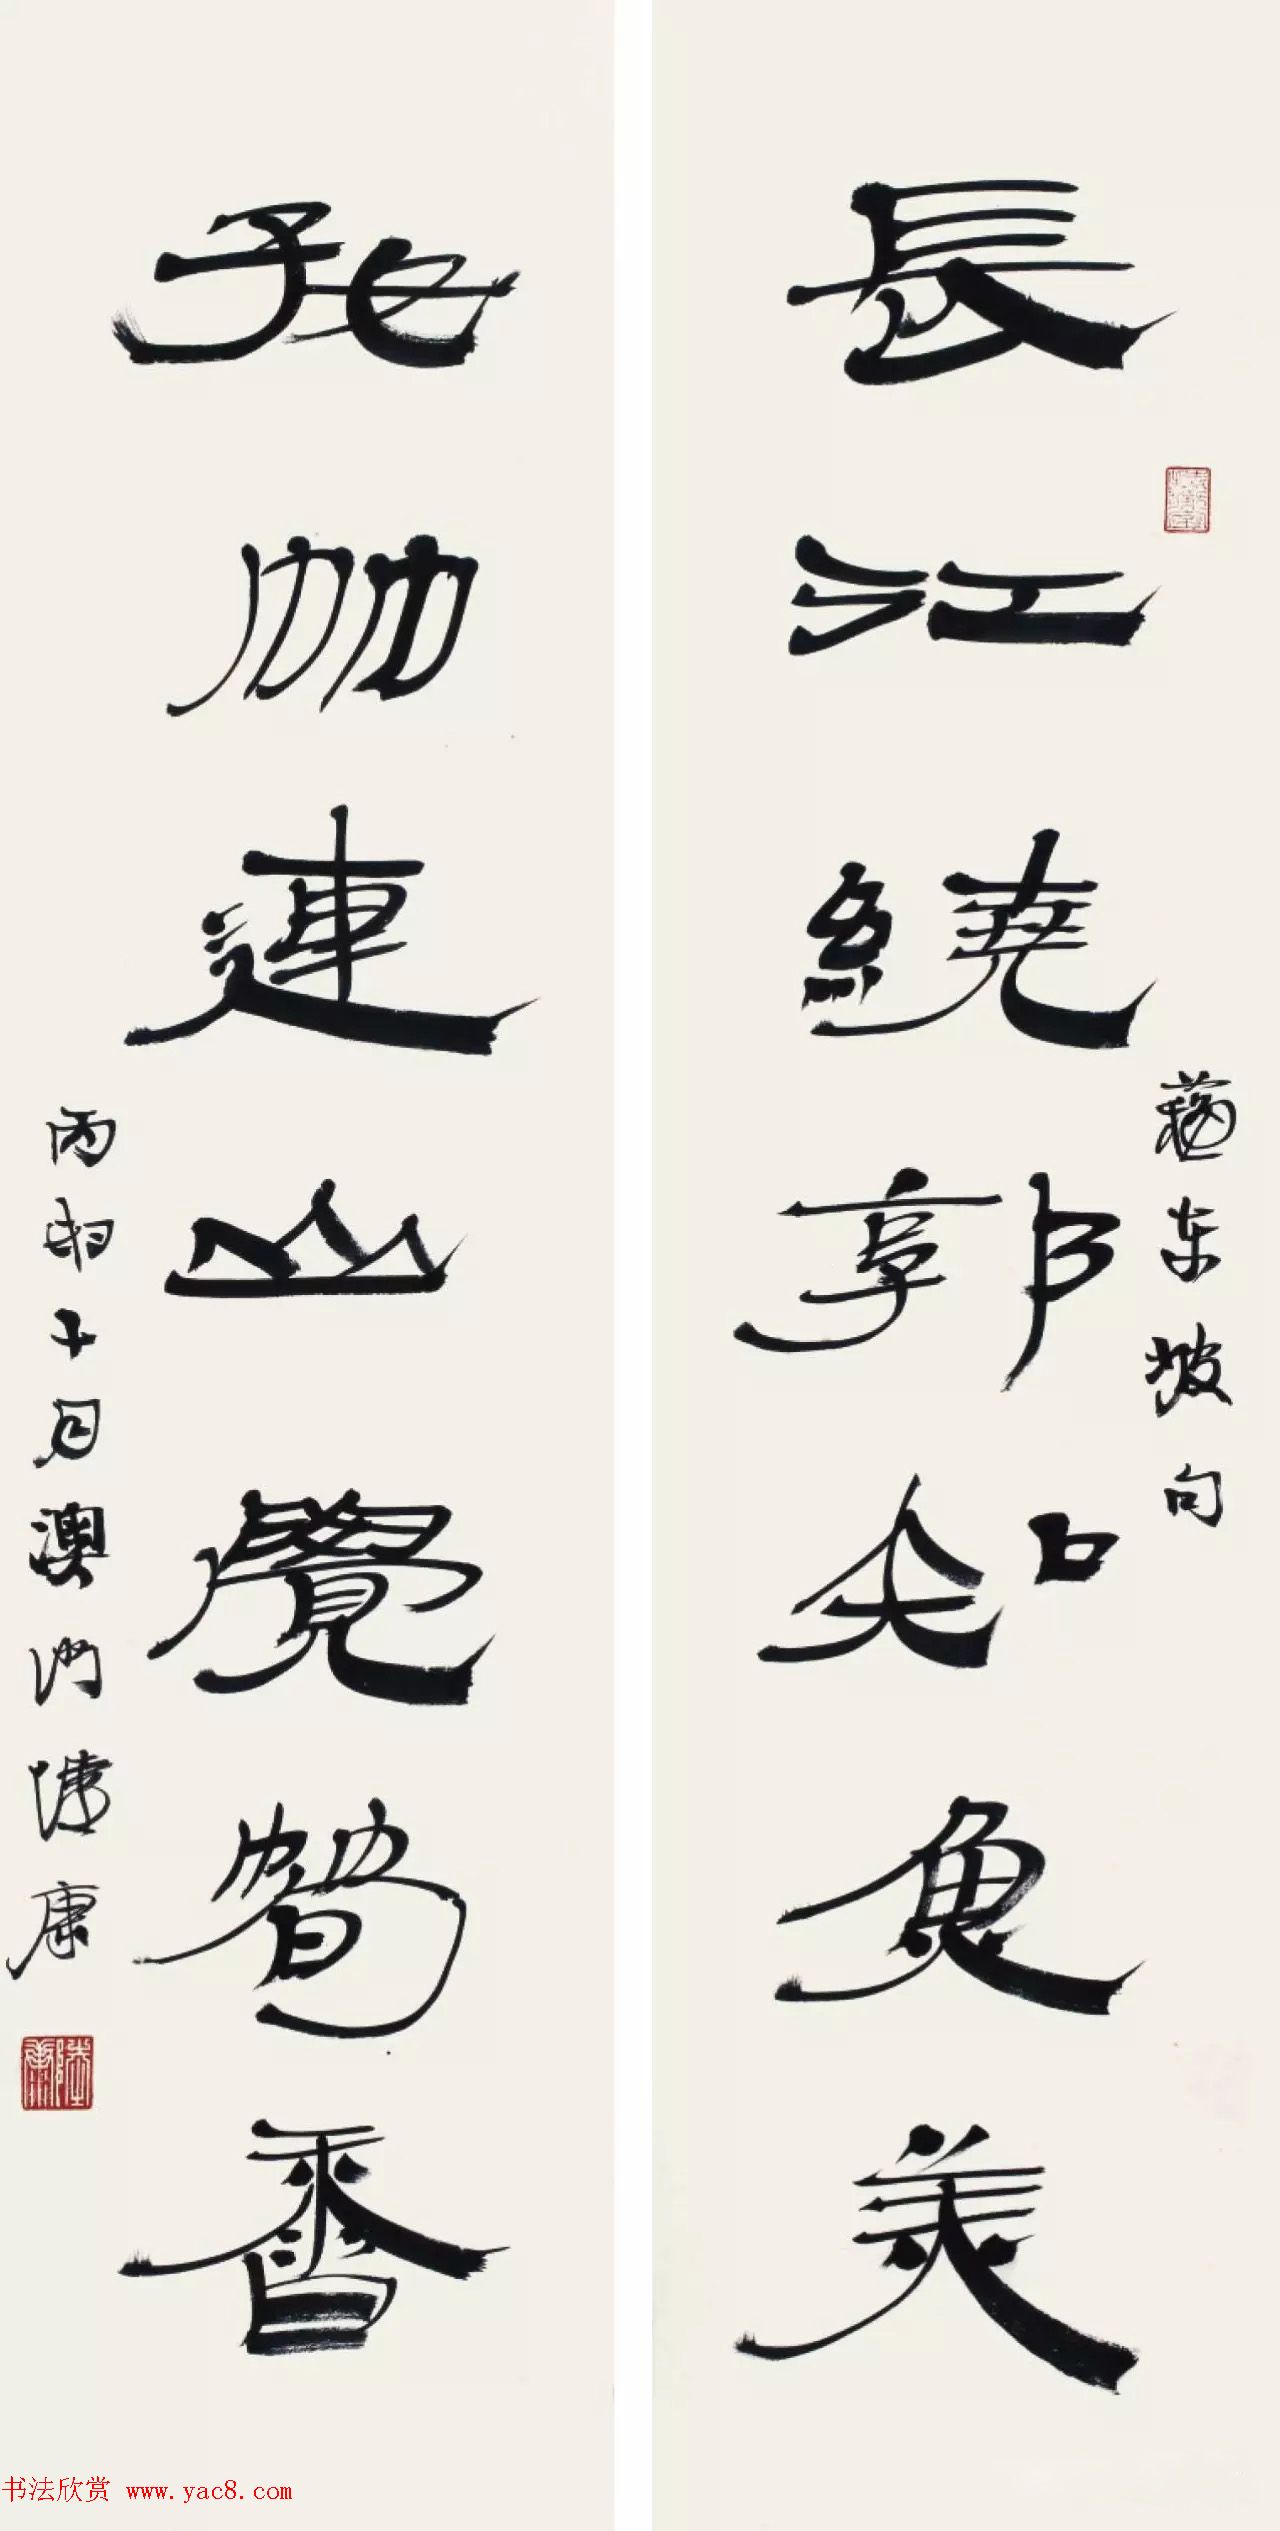 長江繞郭知魚美
蘇东坡句
好竹連山覺筍香
丙申十月澳门陆康
陸康
书法欣赏 www.yac8.com